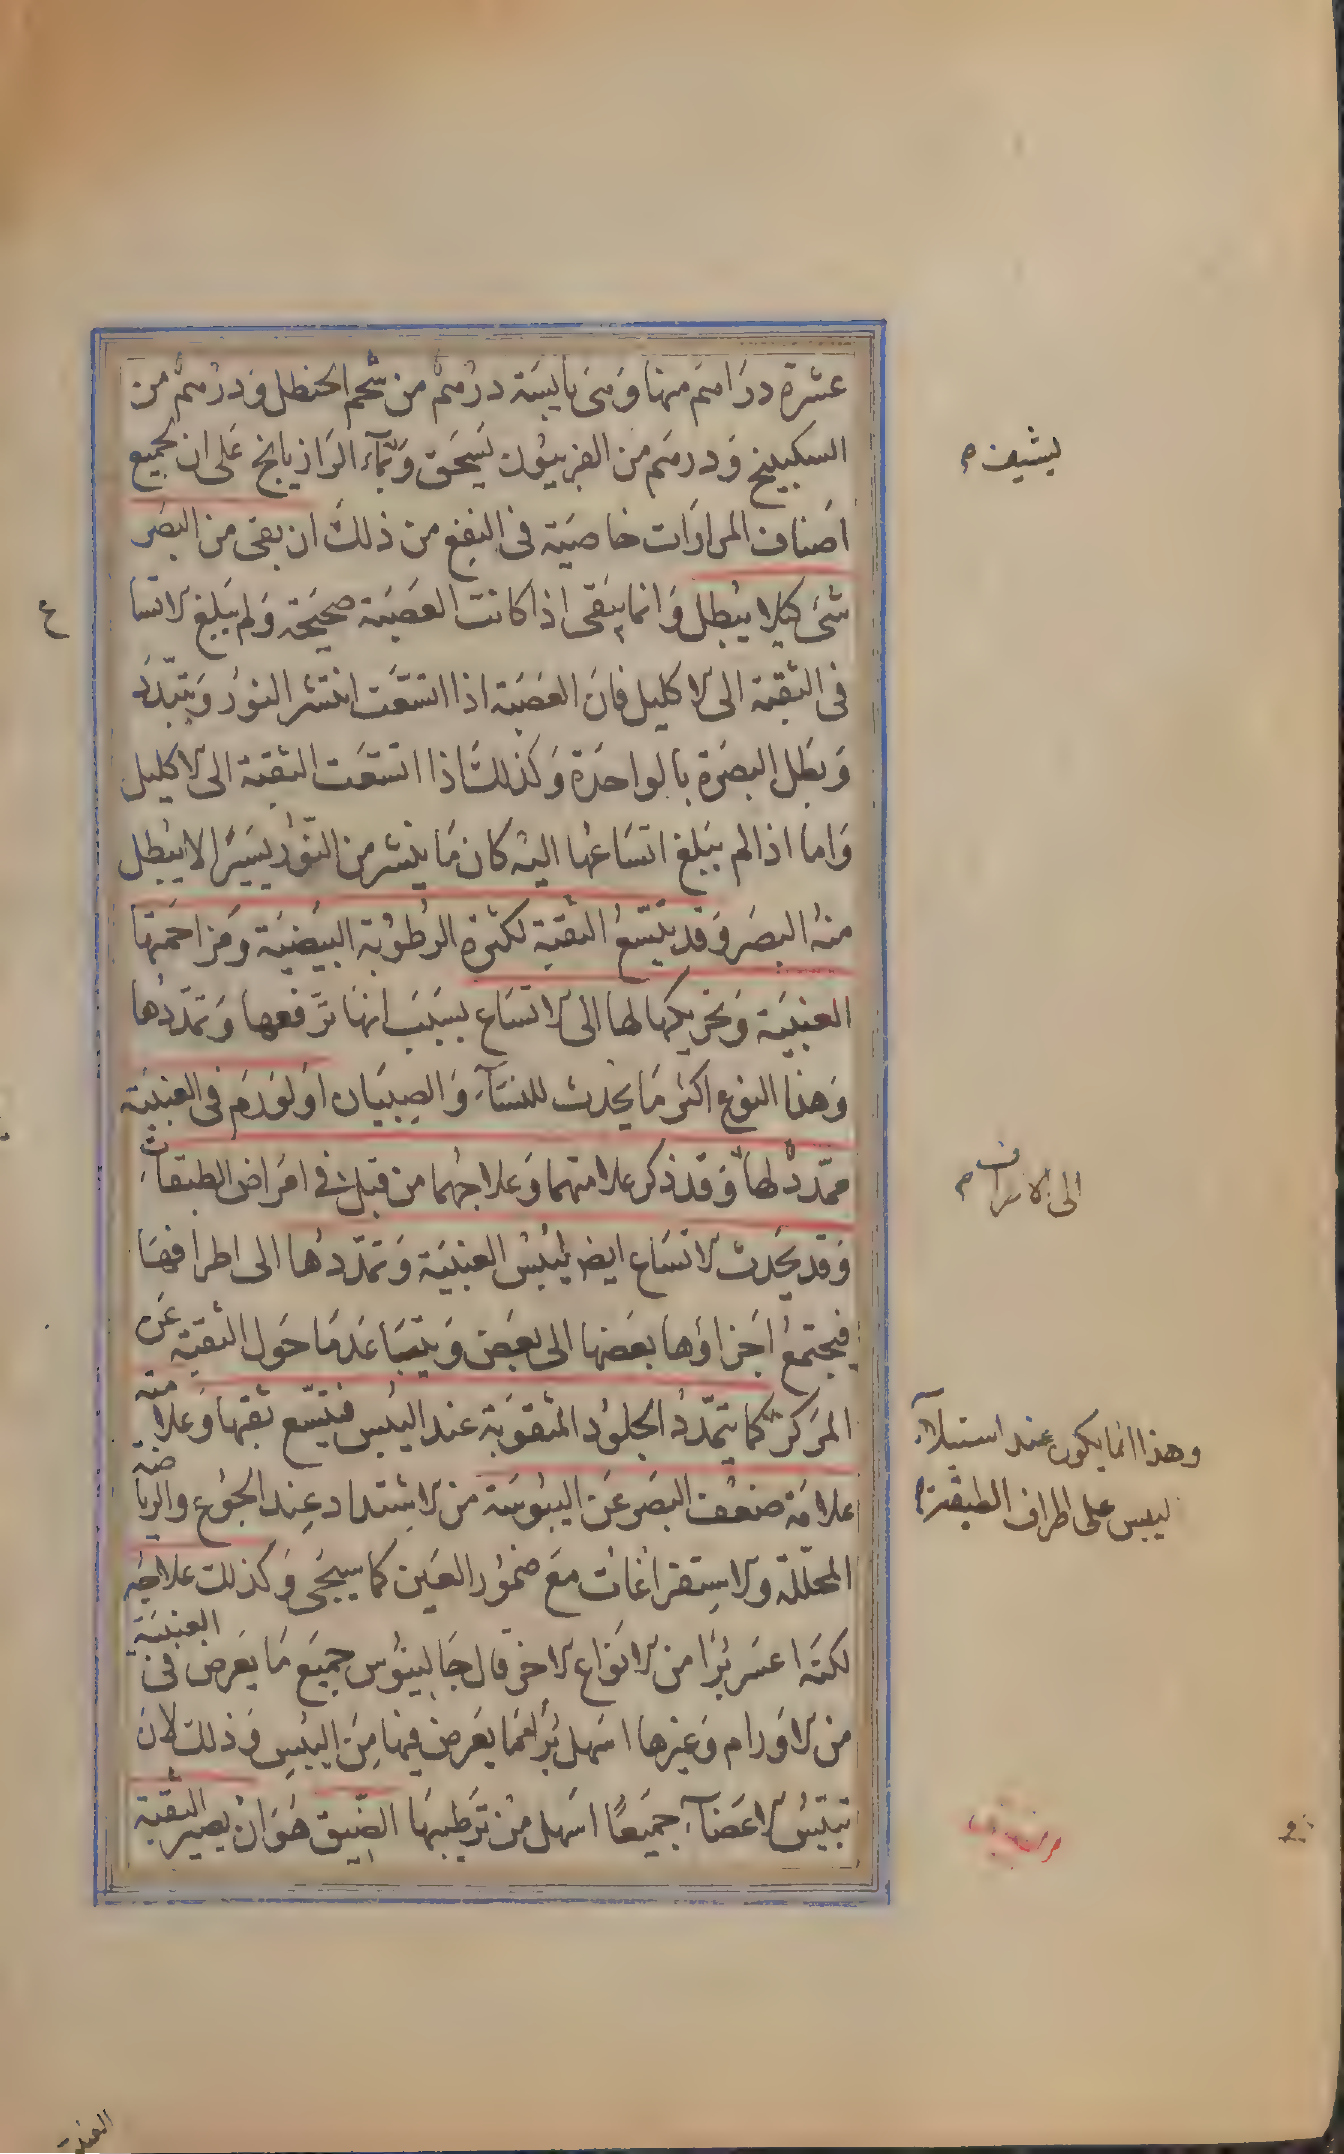 عشرة دراهم منها وهى يابسة درهم من شحم الحنظل ودرهم من
السكبينج ودرهم من الفربيون يسحق وبماء الرازيانج على ان لجميع
اصناف المرارات خاصية فى النفع من ذلك ان بقى من البصر
شىء كيلا يبطل وانما يبقى اذا كانت العصبة صحيحة ولم يبلغ الاتسا
ع
فى الثقبة الى الاكليل فان العصبة اذا اتسعت انتشر النور ويتبدد
وبطل البصرة بالواحدة وكذلك اذا اتسعت الثقبة الى الاكليل
واما اذا لم يبلغ اتساعها اليه كان ما ينتشر من النور يسيرا لا يبطل
منه البصر وقد يتسع الثقبة لكثرة الرطوبة البيضية ومزاحمتها
العنبية وتحريكها لها الى الاتساع بسبب انها ترفعها وتمددها
وهذا النوع اكثر ما يحدث للنساء والصبيان او لورم فى العنبية
ممدد لها وقد ذكر علامتهما وعلاجهما من قبل فى امراض الطبقات
وقد يحدث الاتساع ايضا ليبس العنبية وتمددها الى اطرافها
فيجتمع اجزاؤها بعضها الى بعض ويتباعد ما حول الثقبة عن
المركز كما يتمدد الجلود المثقوبة عند اليبس فيتسع ثقبها وعلامته
علامة ضعف البصر عن اليبوسة من الاشتداد عند الجوع والرياضة
المحللة والاستفراغات مع ضمور العين كما سيجى وكذلك علاجه
لكنه اعسر برءا من الانواع الاخر قال جالينوس جميع ما يعرض فى العنبية
من الاورام وغيرها اسهل برءا مما يعرض فيها من اليبس وذلك لان
تيبيس الاعضاء جميعا اسهل من ترطيبها الضيق هو ان يصير الثقبة
يشيف م
الى الاشراف م
وهذا انما يكون عند استيلاء
اليبس على اطراف الطبقة م